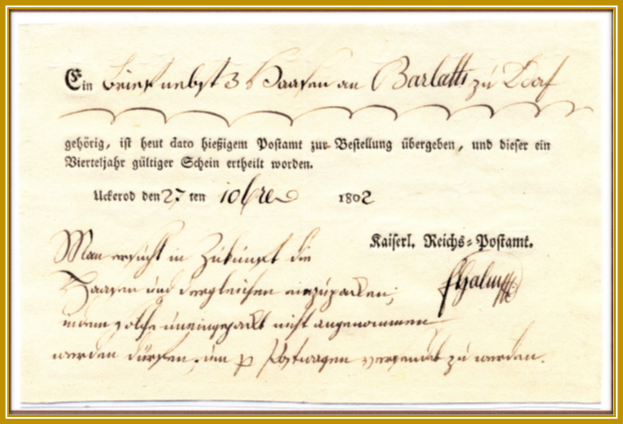 Ein Brief nebst 3 Haasen an Barlatti zu Dorf
gehörig, ist heut dato hießigem Postamt zur Bestellung übergeben, und dieser ein
Vierteljahr gültiger Schein ertheilt worden.
Uckerod den 27 ten 10bre 1802
Kaiserl. Reichs-Postamt.
Man ersucht in Zukunft die
Haasen und dergleichen einzupacken,
indem solche uneingepackt nicht angenommen
werden dürfen, um p Postwagen versendet zu werden.